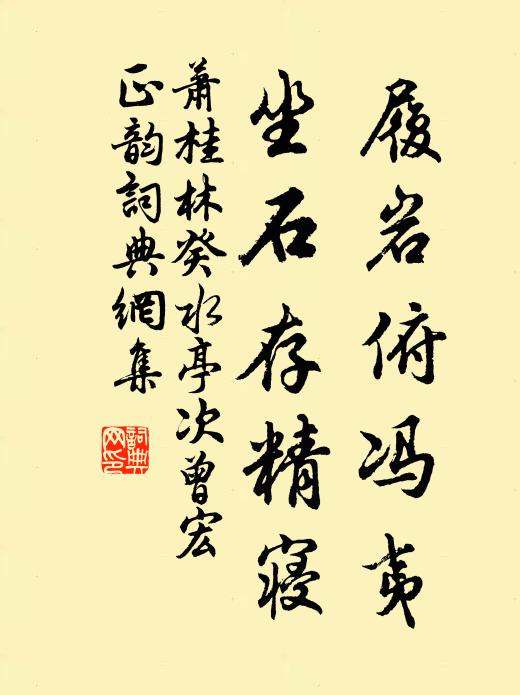 履岩俯冯夷
坐石存精寝
萧桂林癸水亭次曾宏
正韵词典网集
词典网印